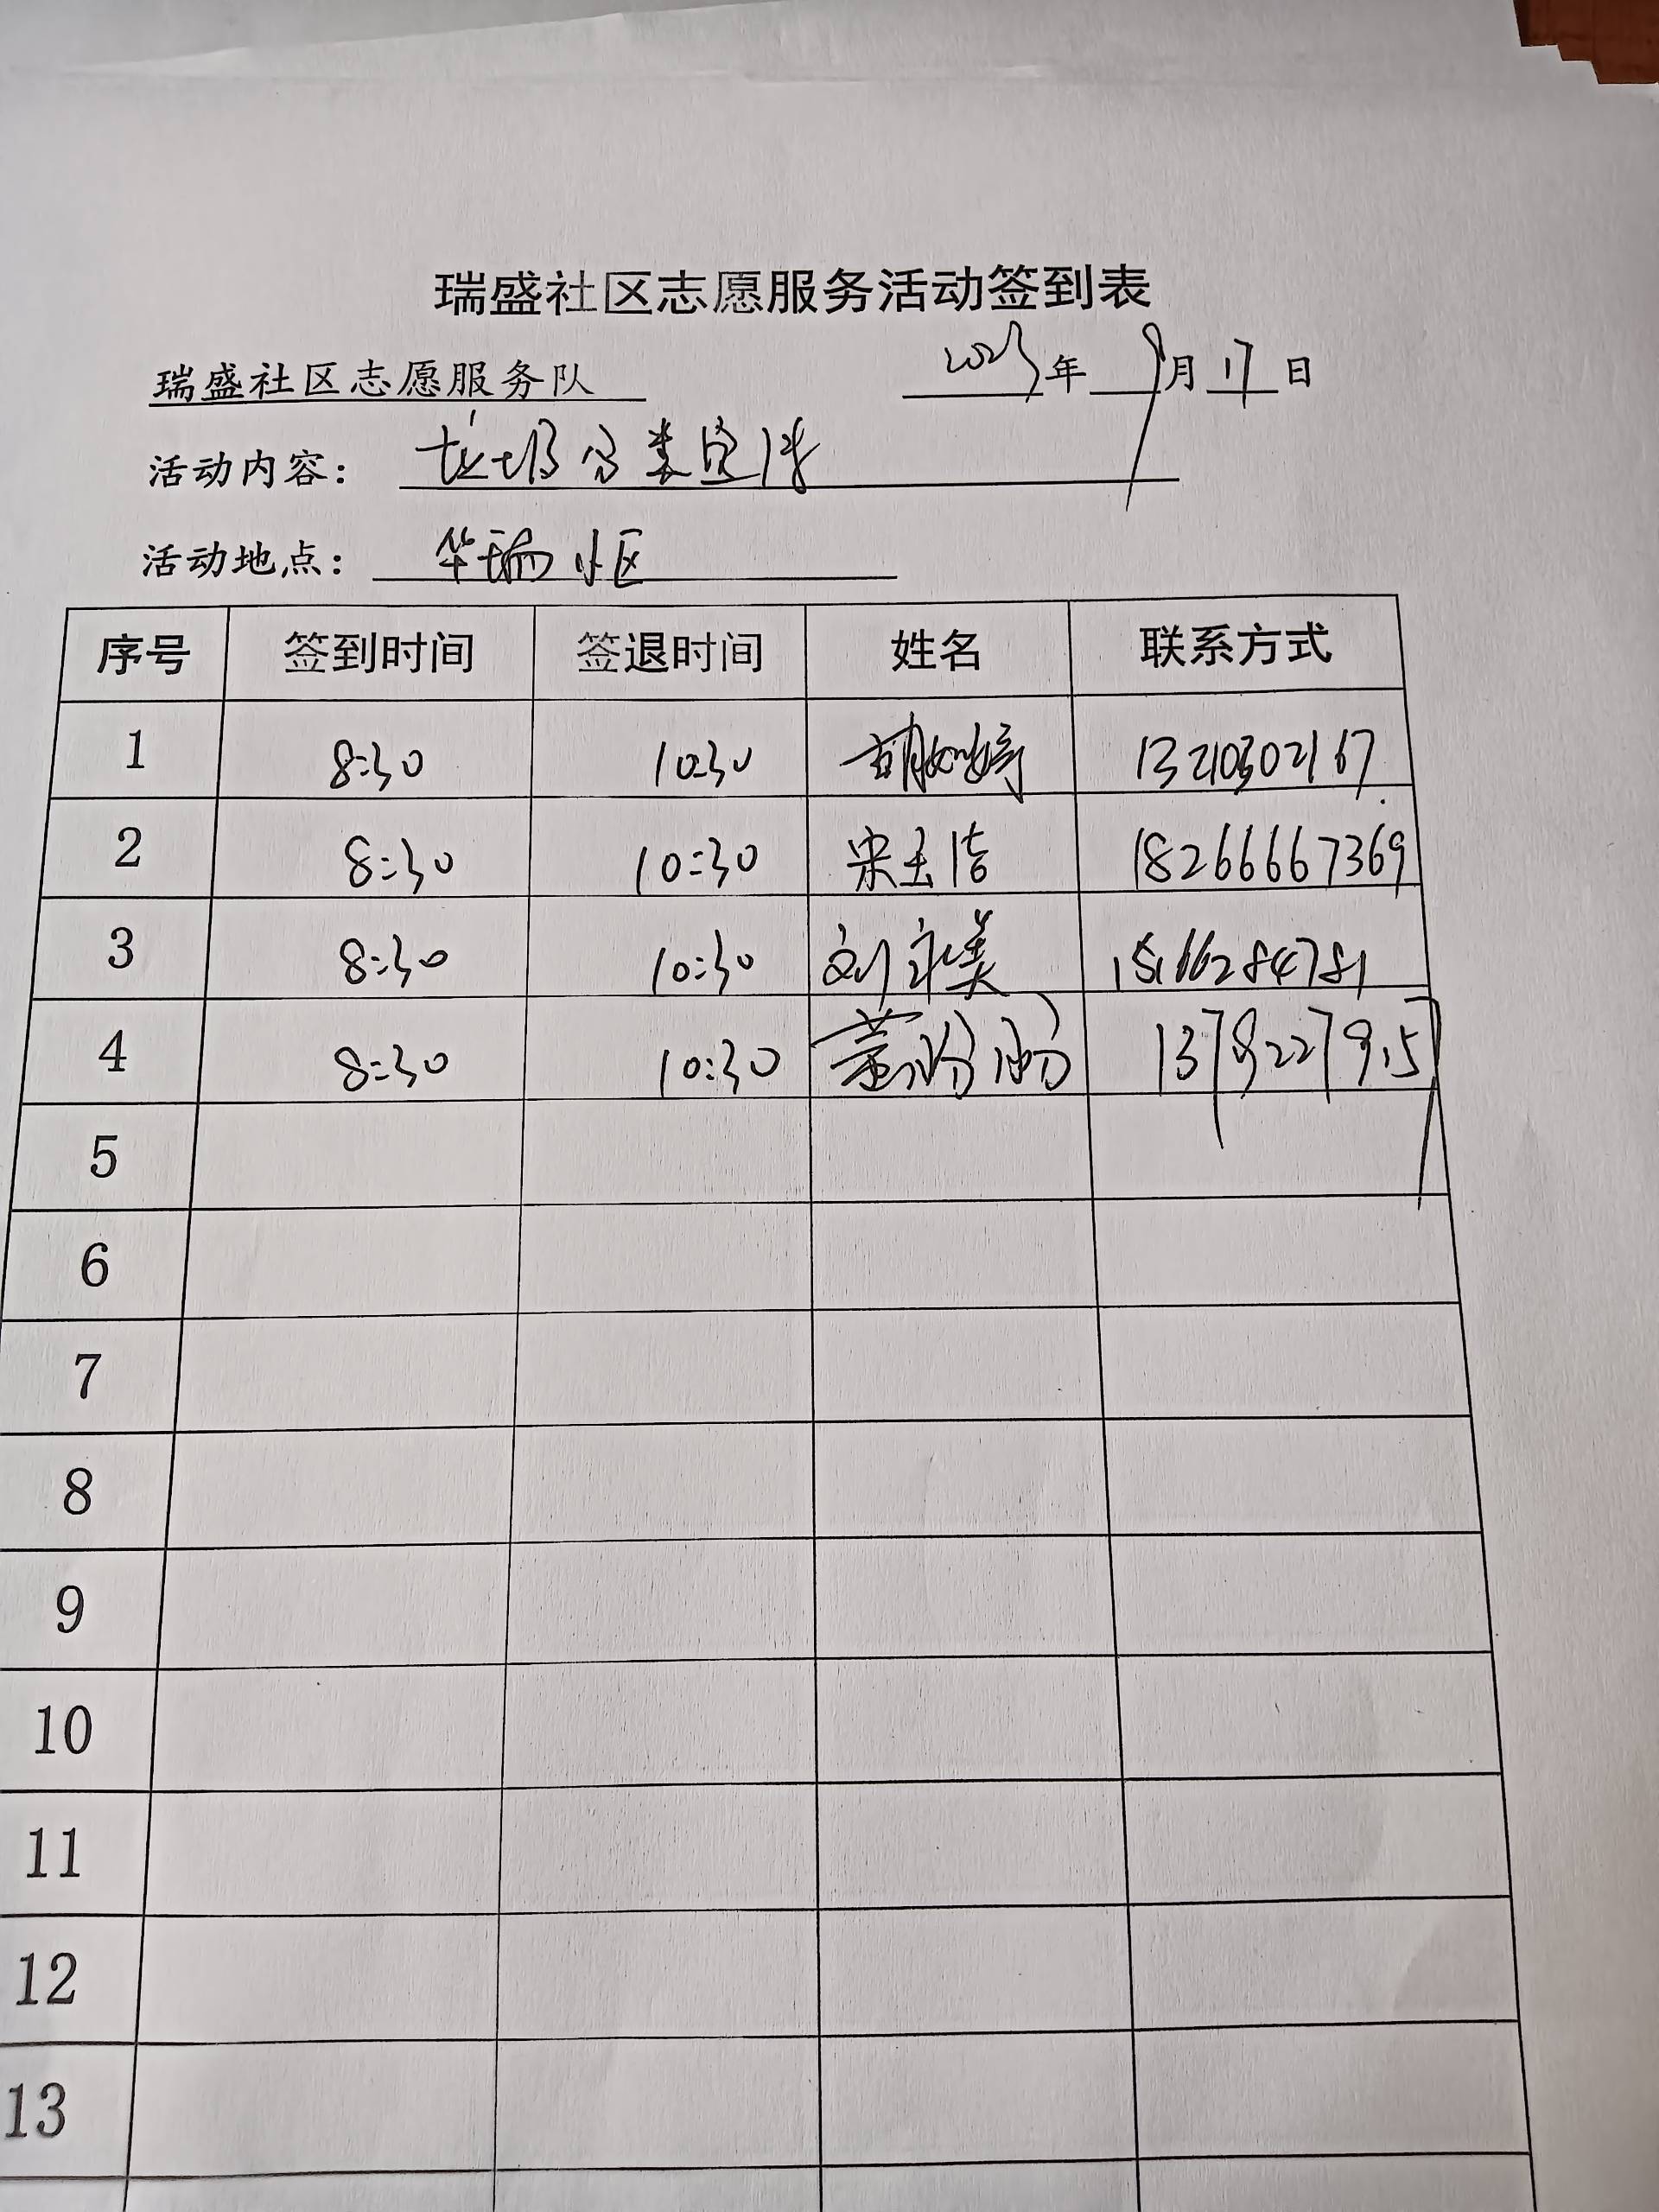 瑞盛社区志愿服务活动签到表
瑞盛社区志愿服务队 2023年9月17日
活动内容：垃圾分类宣传
活动地点：华瑞小区
序号 签到时间 签退时间 姓名 联系方式
1 8:30 10:30 胡婷 13210302167
2 8:30 10:30 宋玉洁 18266667369
3 8:30 10:30 刘永美 15166284781
4 8:30 10:30 董盼盼
5
6
7
8
9
10
11
12
13